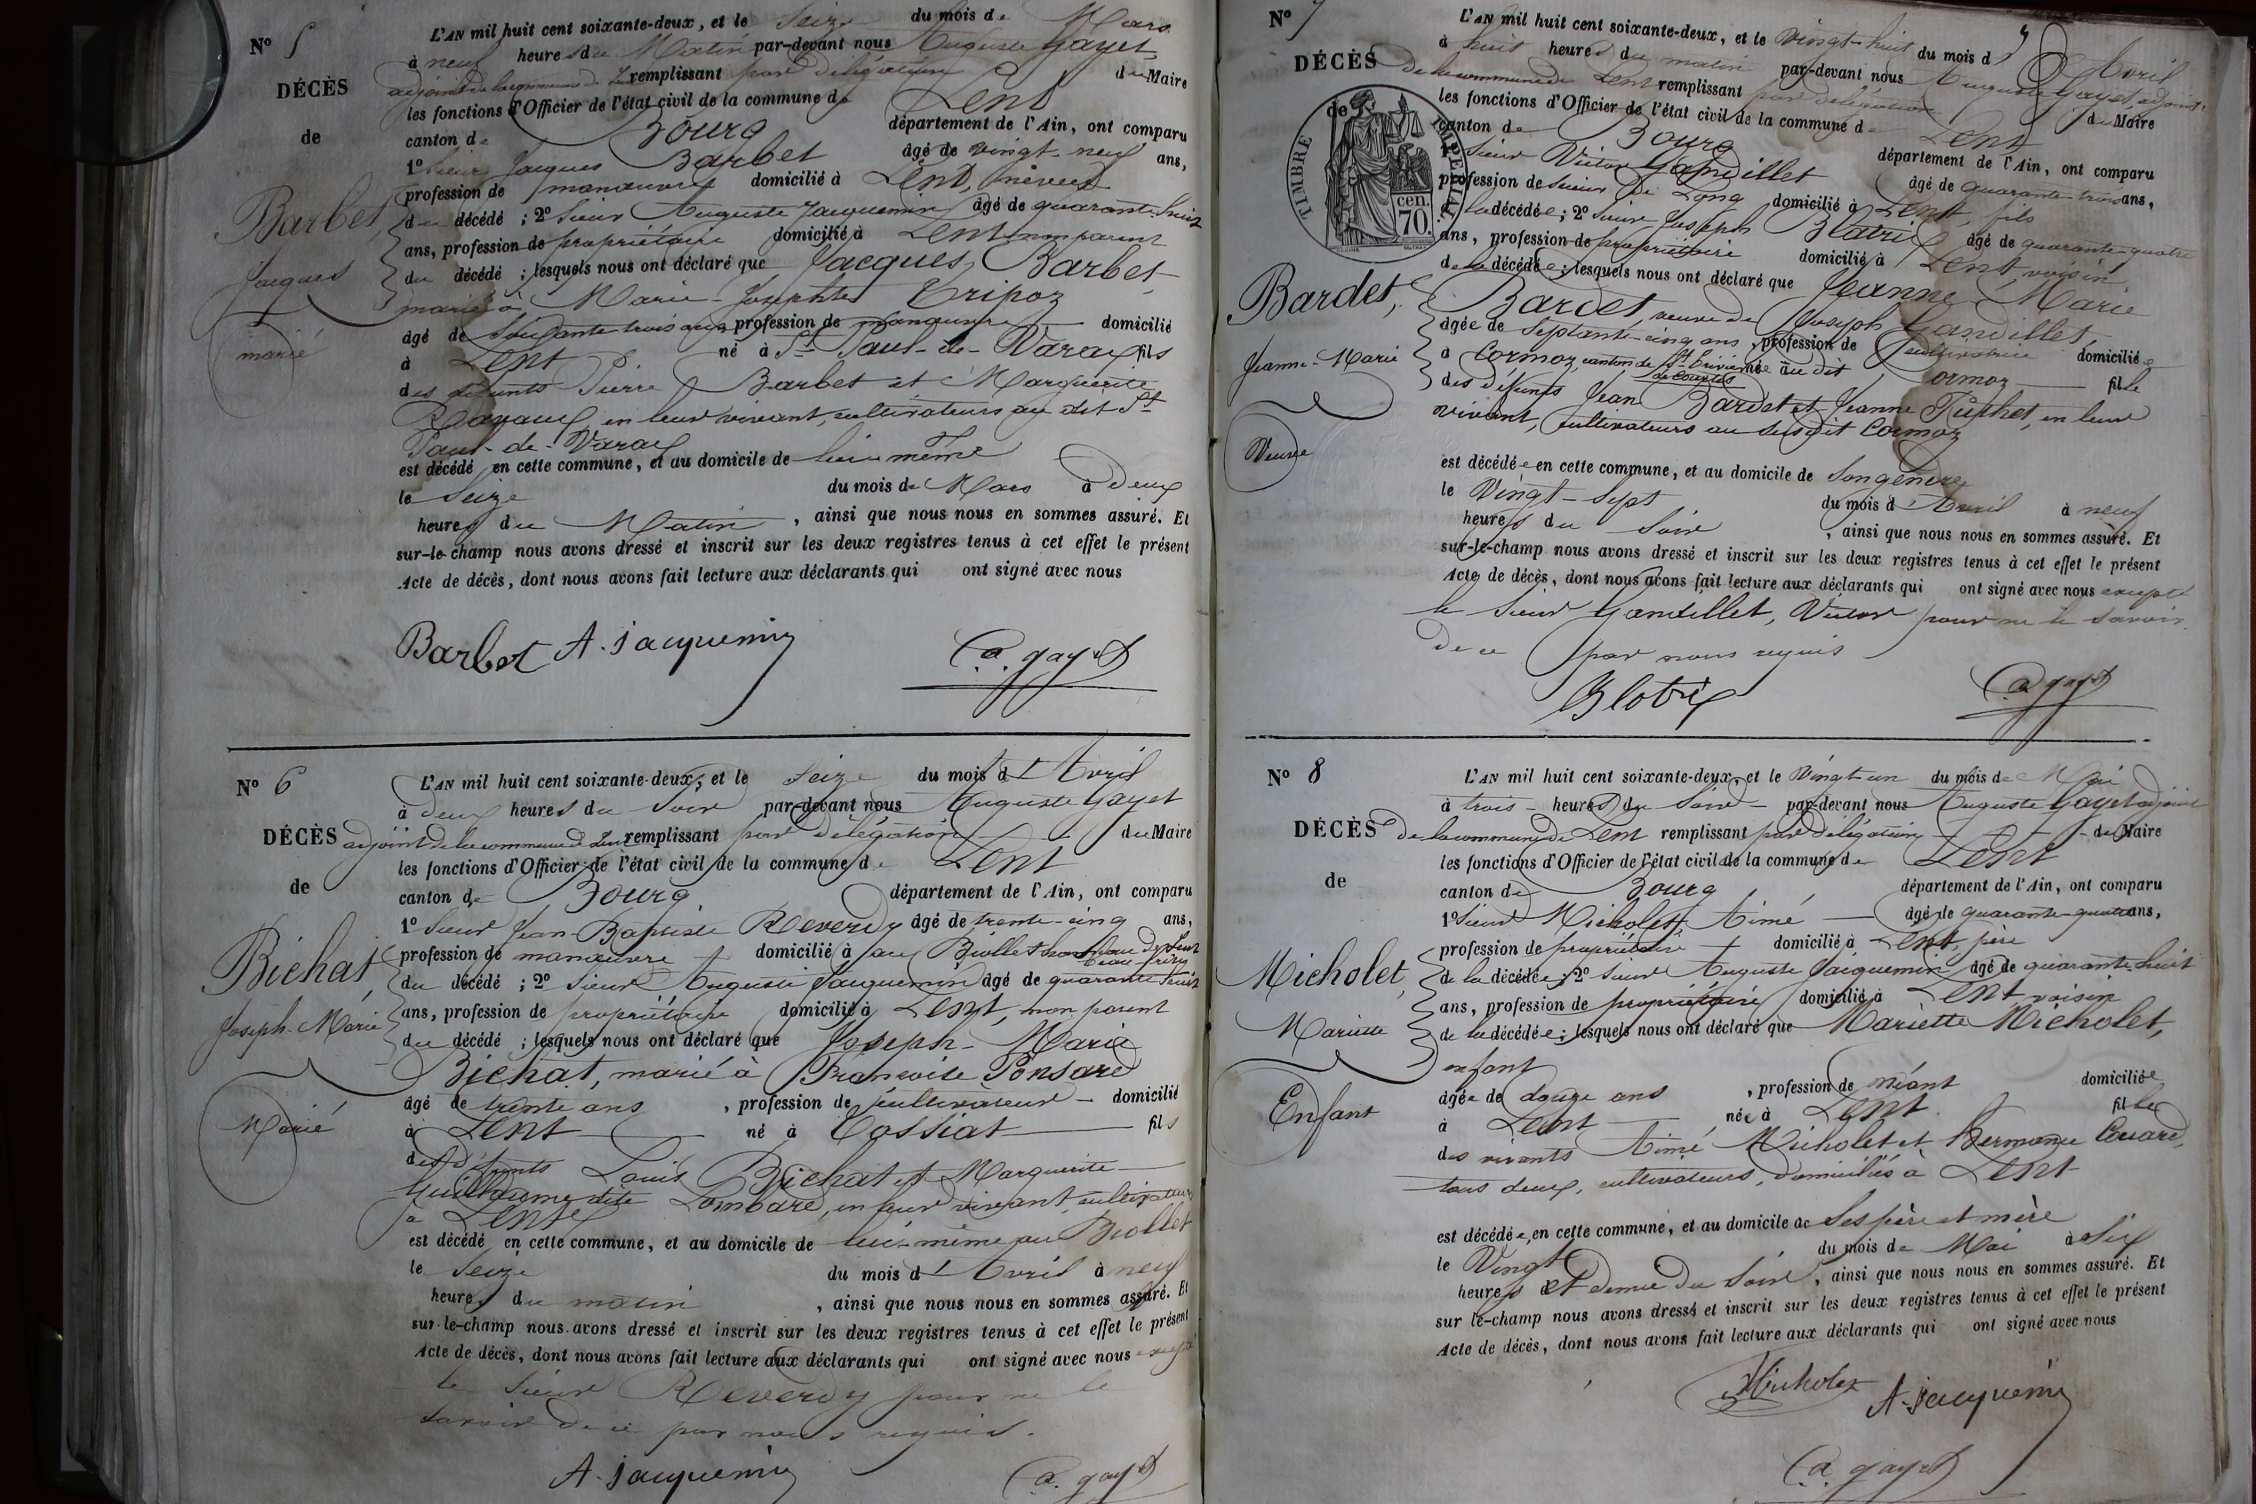 N° 5
DÉCÈS
de
Barbet,
Jacques
marié
L'AN mil huit cent soixante-deux, et le Seize du mois de Mars
à neuf heures du Matin par-devant nous Auguste Gayet,
adjoint de la commune de Lent remplissant par délégation du Maire
les fonctions d'Officier de l'état civil de la commune de Lent
canton de Bourg département de l'Ain, ont comparu
1° Sieur Jacques Barbet âgé de vingt-neuf ans,
profession de manœuvre domicilié à Lent, neveu
du décédé ; 2° Sieur Auguste Jacquemin âgé de quarante-huit
ans, profession de propriétaire domicilié à Lent non parent
du décédé ; lesquels nous ont déclaré que Jacques Barbet,
marié à Marie-Josephte Tripoz
âgé de soixante trois ans profession de manœuvre domicilié
à Lent né à St Paul-de-Varax fils
des défunts Pierre Barbet et Marguerite
en leur vivant, cultivateurs au dit St
Paul-de-Varax
est décédé en cette commune, et au domicile de lui-même
le Seize du mois de Mars à deux
heures du Matin, ainsi que nous nous en sommes assuré. Et
sur-le-champ nous avons dressé et inscrit sur les deux registres tenus à cet effet le présent
Acte de décès, dont nous avons fait lecture aux déclarants qui ont signé avec nous
Barbet A. Jacquemin
a. gayet
N° 6
DÉCÈS
de
Bichat,
Joseph-Marie
Marié
L'AN mil huit cent soixante-deux, et le Seize du mois d'Avril
à deux heures du Soir par-devant nous Auguste Gayet
adjoint de la commune de Lent remplissant par délégation du Maire
les fonctions d'Officier de l'état civil de la commune de Lent
canton de Bourg département de l'Ain, ont comparu
1° Sieur Jean-Baptiste Reverdy âgé de trente-cinq ans,
profession de manœuvre domicilié à au Biollet hameau de Lent
beau-frère
du décédé ; 2° Sieur Auguste Jacquemin âgé de quarante huit
ans, profession de propriétaire domicilié à Lent, non parent
du décédé ; lesquels nous ont déclaré que Joseph-Marie
Bichat, marié à Françoise Ponsard
âgé de trente ans, profession de cultivateur domicilié
à Lent né à Tossiat fils
des défunts Louis Bichat et Marguerite
Guillaume dite Lombard, en leur vivant, cultivateurs
à Lent
est décédé en cette commune, et au domicile de lui-même au Biollet
le Seize du mois d'Avril à neuf
heures du matin, ainsi que nous nous en sommes assuré. Et
sur-le-champ nous avons dressé et inscrit sur les deux registres tenus à cet effet le présent
Acte de décès, dont nous avons fait lecture aux déclarants qui ont signé avec nous excepté
le Sieur Reverdy pour ne le
savoir de ce par nous requis.
A. Jacquemin a. gayet
N° 7
DÉCÈS
de
TIMBRE IMPÉRIAL
70 cen.
Bardet,
Jeanne-Marie
Veuve
L'AN mil huit cent soixante-deux, et le Vingt-huit du mois d'Avril
à huit heures du matin par-devant nous Auguste Gayet, adjoint
de la commune de Lent remplissant par délégation du Maire
les fonctions d'Officier de l'état civil de la commune de Lent
canton de Bourg département de l'Ain, ont comparu
1° Sieur Victor Gandillet âgé de quarante-trois ans,
profession de Scieur de Long domicilié à Lent, fils
de la décédée ; 2° Sieur Joseph Blatrix âgé de quarante-quatre
ans, profession de propriétaire domicilié à Lent, voisin
de la décédée ; lesquels nous ont déclaré que Jeanne Marie
Bardet, veuve de Joseph Gandillet,
âgée de Septante-cinq ans, profession de cultivatrice domiciliée
à Cormoz, canton de St Trivier de Courtes née au dit Cormoz fille
des défunts Jean Bardet et Jeanne Puphet, en leur
vivant, cultivateurs au susdit Cormoz
est décédée en cette commune, et au domicile de Son gendre
le Vingt-Sept du mois d'Avril à neuf
heures du Soir, ainsi que nous nous en sommes assuré. Et
sur-le-champ nous avons dressé et inscrit sur les deux registres tenus à cet effet le présent
Acte de décès, dont nous avons fait lecture aux déclarants qui ont signé avec nous excepté
le Sieur Gandillet, Victor pour ne le savoir
de ce par nous requis
Blatrix a gayet
N° 8
DÉCÈS
de
Micholet,
Mariette
Enfant
L'AN mil huit cent soixante-deux, et le Vingt-un du mois de Mai
à trois heures du Soir par-devant nous Auguste Gayet adjoint
de la commune de Lent remplissant par délégation du Maire
les fonctions d'Officier de l'état civil de la commune de Lent
canton de Bourg département de l'Ain, ont comparu
1° Sieur Micholet, Aimé âgé de quarante-quatre ans,
profession de propriétaire domicilié à Lent, père
de la décédée ; 2° Sieur Auguste Jacquemin âgé de quarante-huit
ans, profession de propriétaire domicilié à Lent, voisin
de la décédée ; lesquels nous ont déclaré que Mariette Micholet,
enfant
âgée de douze ans, profession de néant domiciliée
à Lent née à Lent fille
des vivants Aimé Micholet et Hermance
tous deux, cultivateurs, domiciliés à Lent
est décédée, en cette commune, et au domicile de Ses père et mère
le Vingt du mois de Mai à Six
heures et demie du Soir, ainsi que nous nous en sommes assuré. Et
sur le-champ nous avons dressé et inscrit sur les deux registres tenus à cet effet le présent
Acte de décès, dont nous avons fait lecture aux déclarants qui ont signé avec nous
Micholet A. Jacquemin
a. gayet